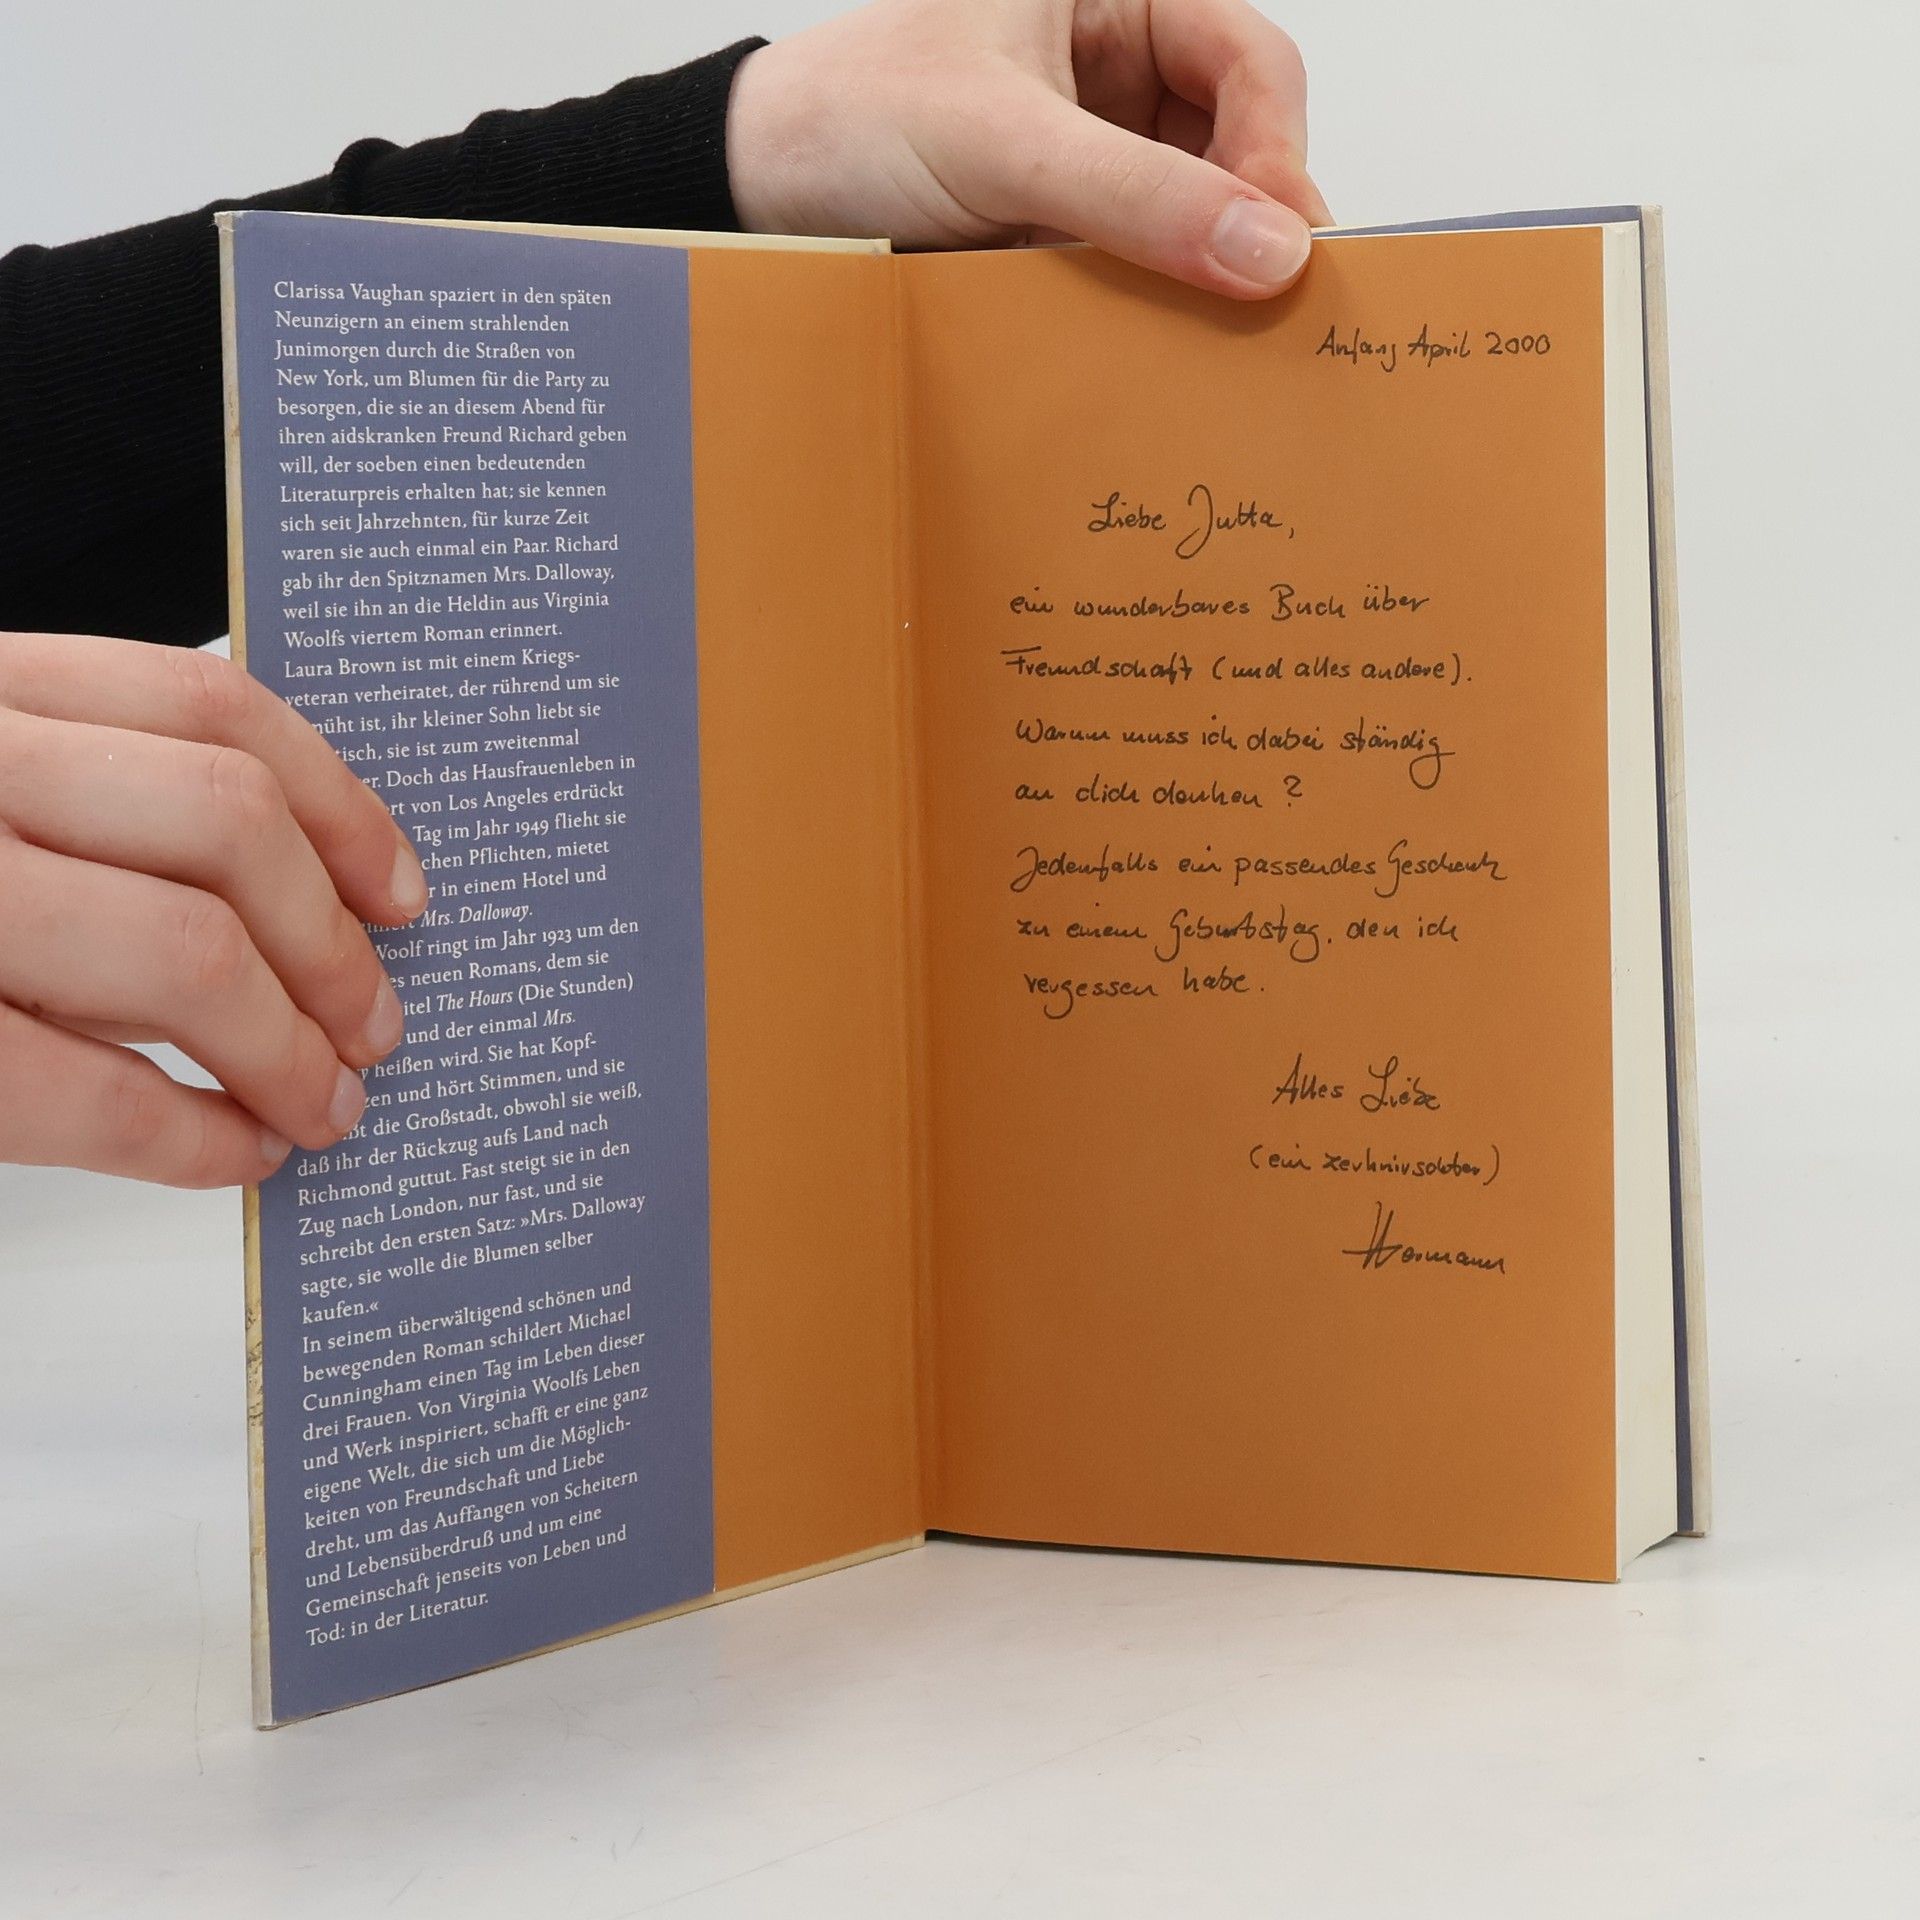 Clarissa Vaughan spaziert in den späten
Neunzigern an einem strahlenden
Junimorgen durch die Straßen von
New York, um Blumen für die Party zu
besorgen, die sie an diesem Abend für
ihren aidskranken Freund Richard geben
will, der soeben einen bedeutenden
Literaturpreis erhalten hat; sie kennen
sich seit Jahrzehnten, für kurze Zeit
waren sie auch einmal ein Paar. Richard
gab ihr den Spitznamen Mrs. Dalloway,
weil sie ihn an die Heldin aus Virginia
Woolfs viertem Roman erinnert.
Laura Brown ist mit einem Kriegs-
veteran verheiratet, der rührend um sie
ist, ihr kleiner Sohn liebt sie
sie ist zum zweitenmal
Doch das Hausfrauenleben in
von Los Angeles erdrückt
Tag im Jahr 1949 flieht sie
Pflichten, mietet
in einem Hotel und
Mrs. Dalloway.
Woolf ringt im Jahr 1923 um den
neuen Romans, dem sie
The Hours (Die Stunden)
und der einmal Mrs.
heißen wird. Sie hat Kopf-
und hört Stimmen, und sie
die Großstadt, obwohl sie weiß,
daß ihr der Rückzug aufs Land nach
Richmond guttut. Fast steigt sie in den
Zug nach London, nur fast, und sie
schreibt den ersten Satz: »Mrs. Dalloway
sagte, sie wolle die Blumen selber
kaufen.«
In seinem überwältigend schönen und
bewegenden Roman schildert Michael
Cunningham einen Tag im Leben dieser
drei Frauen. Von Virginia Woolfs Leben
und Werk inspiriert, schafft er eine ganz
eigene Welt, die sich um die Möglich-
keiten von Freundschaft und Liebe
dreht, um das Auffangen von Scheitern
und Lebensüberdruß und um eine
Gemeinschaft jenseits von Leben und
Tod: in der Literatur.
Anfang April 2000
Liebe Jutta,
ein wunderbares Buch über
Freundschaft (und alles andere).
Warum muss ich dabei ständig
an dich denken?
Jedenfalls ein passendes Geschenk
zu einem Geburtstag, den ich
vergessen habe.
Alles Liebe
(ein zerknirschter)
Hermann